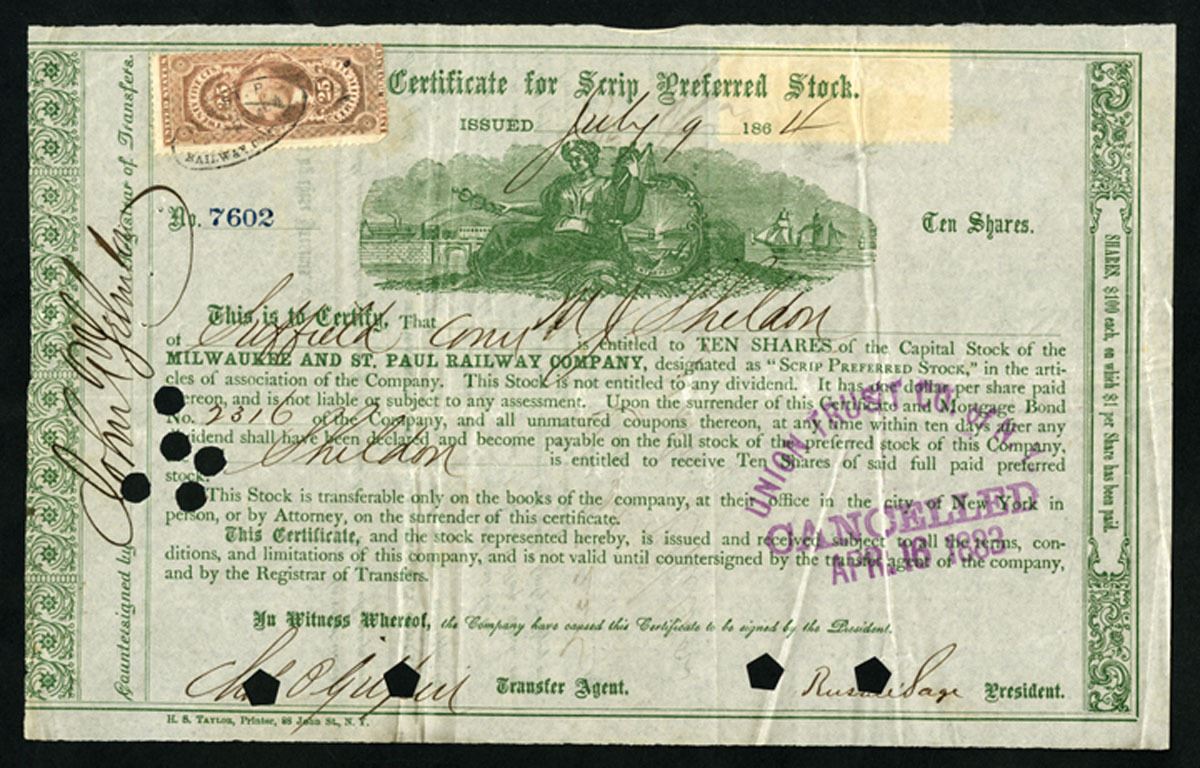 Certificate for Scrip Preferred Stock.
ISSUED July 9 1864
25 25
RAILWAY
No. 7602
Ten Shares.
This is to Certify, That M J Sheldon
of Suffield Conn is entitled to TEN SHARES of the Capital Stock of the
MILWAUKEE AND ST. PAUL RAILWAY COMPANY, designated as "SCRIP PREFERRED STOCK," in the arti-
cles of association of the Company. This Stock is not entitled to any dividend. It has one dollar per share paid
thereon, and is not liable or subject to any assessment. Upon the surrender of this Certificate and Mortgage Bond
No. 2316 of the Company, and all unmatured coupons thereon, at any time within ten days after any
dividend shall have been declared and become payable on the full stock of the preferred stock of this Company,
Sheldon is entitled to receive Ten Shares of said full paid preferred
stock.
This Stock is transferable only on the books of the company, at their office in the city of New York in
person, or by Attorney, on the surrender of this certificate.
This Certificate, and the stock represented hereby, is issued and received subject to all the terms, con-
ditions, and limitations of this company, and is not valid until countersigned by the transfer agent of the company,
and by the Registrar of Transfers.
UNION TRUST CO. OF N.Y.
CANCELLED
APR. 16 1883
In Witness Whereof, the Company have caused this Certificate to be signed by the President.
Transfer Agent.
Russell Sage President.
H. S. TAYLOR, Printer, 88 John St., N. Y.
Countersigned by John Registrar of Transfers.
SHARES $100 each, on which $1 per Share has been paid.